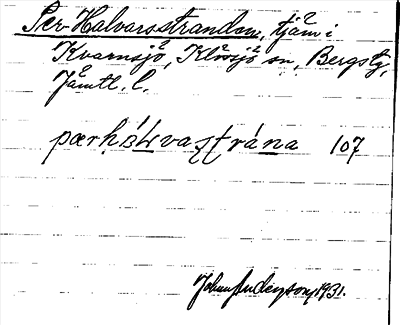 Per-Halvarsstranden, tjärn i
Kvarnsjö, Klövsjö sn, Bergs tg,
Jämtl. l.
pærhálvastrána 107
John Anderson, 1931.